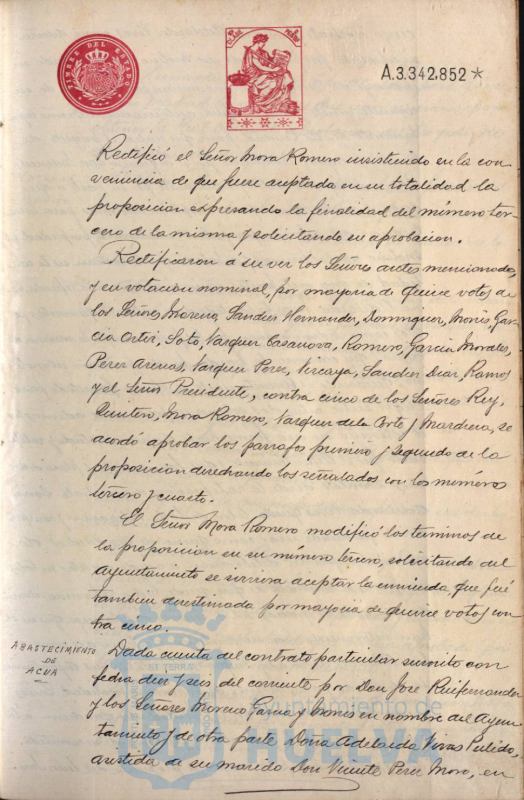 TIMBRE DEL ESTADO
A.3.342,852*
Rectificó el Señor Mora Romero insistiendo en la con
veniencia de que fuese aceptada en su totalidad la
proposicion expresando la finalidad del número ter-
cero de la misma y solicitando su aprobacion.
Rectificaron á su vez los Señores antes mencionados
y en votación nominal, por mayoria de quince votos de
los Señores Moreno, Sanchez Hernandez, Dominguez, Monis, Gar-
cia Ortiz, Soto, Vazquez Casanova, Romero, Garcia Morales,
Perez Arenas, Vazquez Perez, Vizcaya, Sanchez Diaz, Ramos
y el Señor Presidente, contra cinco de los Señores Rey,
Quintero, Mora Romero, Vazquez de la Corte y Marchena, se
acordó aprobar los parrafos primero y segundo de la
proposicion desechando los señalados con los números
tercero y cuarto.
El Señor Mora Romero modificó los terminos de
la proposicion en su número tercero, solicitando del
Ayuntamiento se sirviera aceptar la enmienda, que fué
tambien desestimada por mayoria de quince votos con
tra cinco.
ABASTECIMIENTO
DE
AGUA
Dada cuenta del contrato particular suscrito con
fecha diez y seis del corriente por Don José Ruifernandez
y los Señores Moreno, Garcia y Monis en nombre del Ayun-
tamiento y de otra parte Doña Adelaida Vivas Pulido,
asistida de su marido Don Vicente Perez Moro, en
Ayuntamiento de
HUELVA